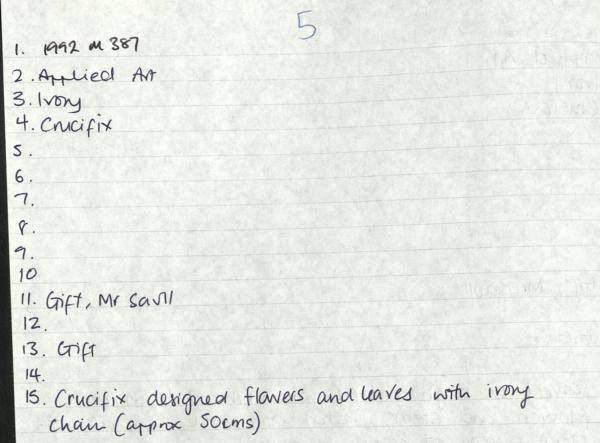 5
1. 1992 M 387
2. Applied Art
3. Ivory
4. Crucifix
5.
6.
7.
8.
9.
10
11. Gift, Mr Savill
12.
13. Gift
14.
15. Crucifix designed flowers and leaves with ivory
chain (approx 50cms)